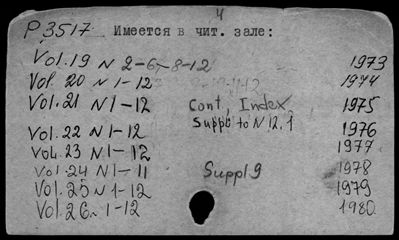 4
P3517 Имеется в чит. зале:
Vol.19 N 2-6, 8-12 1973
Vol. 20 N 1-12 1974
Vol. 21 N 1-12 Cont, Index 1975
Suppl to N 12, 1
Vol. 22 N 1-12 1976
Vol. 23 N 1-12 1977
Vol. 24 N 1-11 Suppl 9 1978
Vol. 25 N 1-12 1979
Vol. 26 1-12 1980